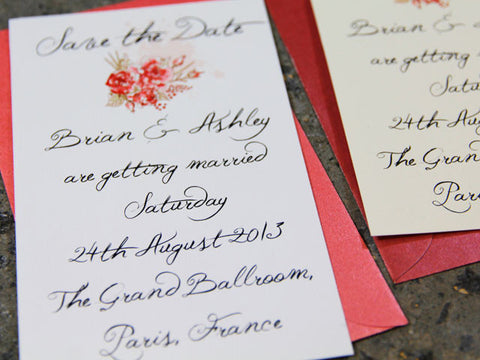 Save the Date
Brian & Ashley
are getting married
Saturday
24th August 2013
The Grand Ballroom,
Paris, France
Brian &
are getting
Satu
24th Aug
The Gran
Paris